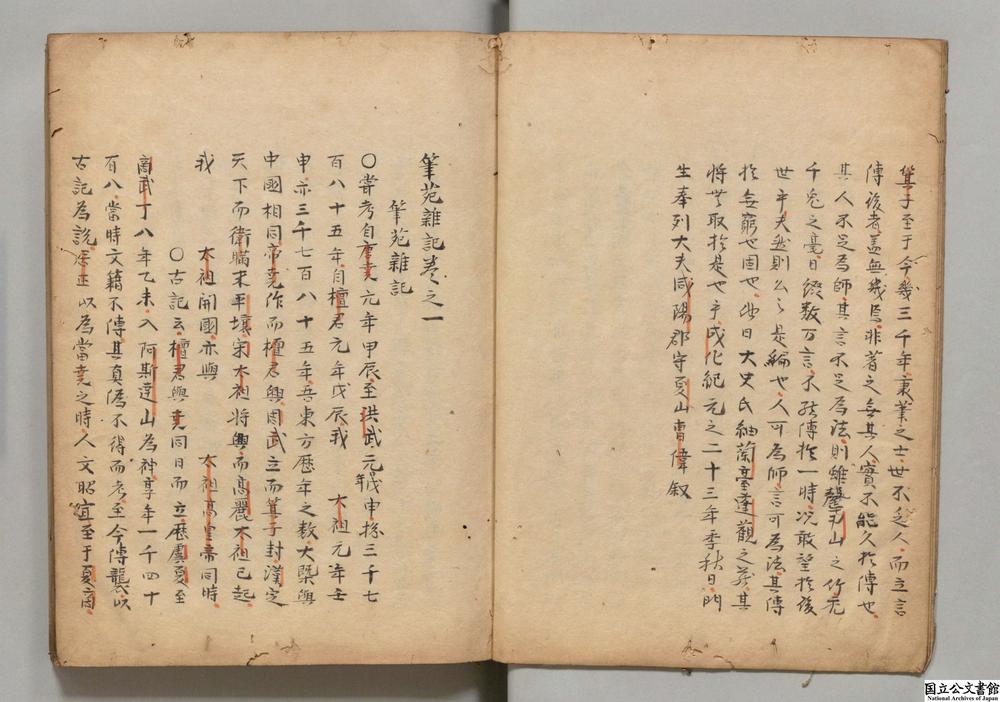 箕子至于今幾三千年秉筆之士世不乏人而立言
傳後者盖無幾焉非著之無其人實不能久於傳也
其人不足為師其言不足為法則雖罄南山之竹禿
千兎之毫日綴数万言不能傳於一時况敢望於後
世乎夫然則公之是編也人可為師言可為法其傳
於無窮也固也他日大史氏紬蘭臺蓬觀之藏其
将無取於是也乎成化紀元之二十三年季秋日門
生奉列大夫咸陽郡守夏山曺偉叙
筆苑雜記卷之一
筆苑雜記
〇嘗考自唐堯元年甲辰至洪武元年戊申捴三千七
百八十五年自檀君元年戊辰我 太祖元年壬
申亦三千七百八十五年吾東方歴年之数大槩與
中國相同帝堯作而檀君興周武立而箕子封漢定
天下而衛瞞来平壤宋太祖将興而高麗太祖已起
我 太祖開國亦與 太祖高皇帝同時
〇古記云檀君與堯同日而立歴虞夏至
商武丁八年乙未入阿斯達山為神享年一千四十
有八當時文籍不傳其真偽不得而考至今傳襲以
古記為說 以為當堯之時人文昭宣至于夏商
国立公文書館
National Archives of Japan